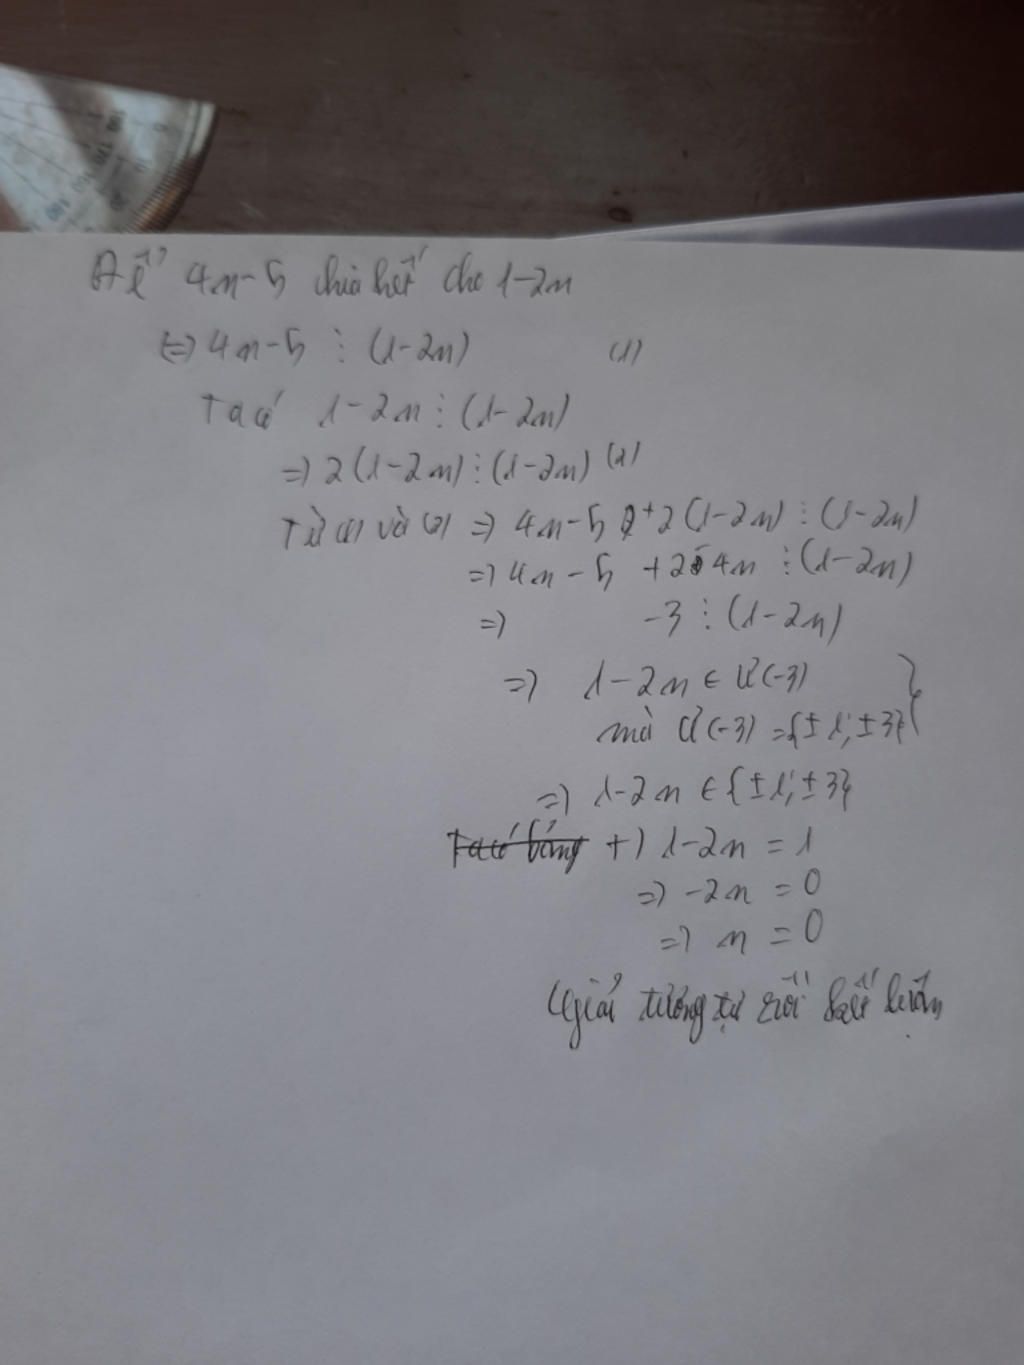 Để 4n-5 chia hết cho 1-2n
<=> 4n-5 ⋮ (1-2n) (1)
Ta có 1-2n ⋮ (1-2n)
=> 2(1-2n) ⋮ (1-2n) (2)
Từ (1) và (2) => 4n-5 + 2(1-2n) ⋮ (1-2n)
=> 4n-5 +2-4n ⋮ (1-2n)
=> -3 ⋮ (1-2n)
=> 1-2n ∈ Ư(-3)
mà Ư(-3) ={±1;±3}
=> 1-2n ∈ {±1;±3}
Ta có bảng +) 1-2n = 1
=> -2n = 0
=> n = 0
Giải tương tự rồi kết luận